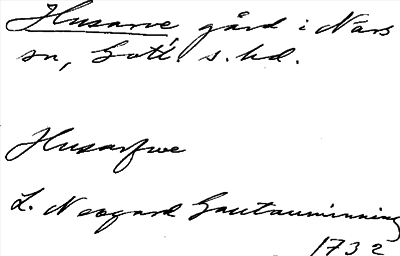 Husarve, gård i Närs
sn, Gotl. s. hd.
Husarfwe
L. Neogard Gautauminning
1732